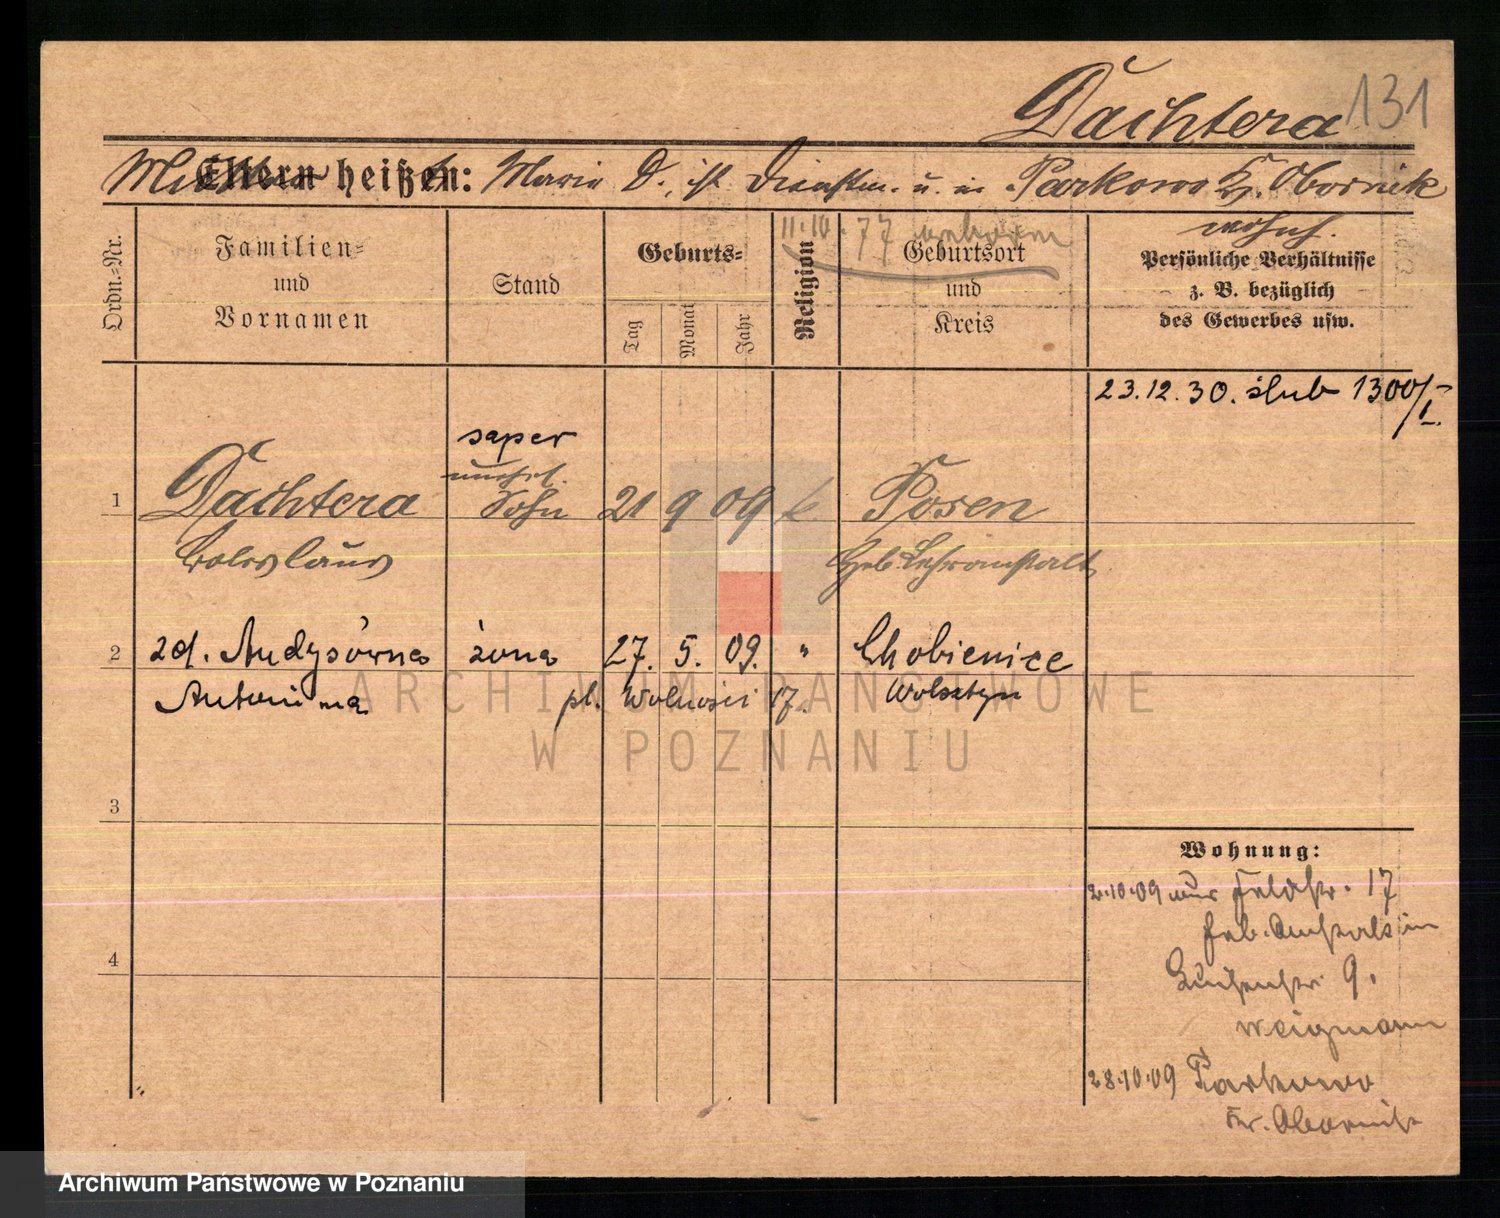 Dachtera 131
Mutter heißt: Marie D. ist Dienstm. u. in Parkowo Kr. Obornik
wohnh.
11.10.77 geboren
Ordn.-Nr.
Familien-
und
Vornamen
Stand
Geburts-
Tag
Monat
Jahr
Religion
Geburtsort
und
Kreis
Persönliche Verhältnisse
z. B. bezüglich
des Gewerbes usw.
23.12.30. ślub 1300/I.
saper
unehel.
1 Dachtera Sohn 21 9 09 k. Posen
Boleslaus Heb. Lehranstalt
2 zd. żona 27. 5. 09. " Chobienice
Antonina pl. Wolności 17. Wolsztyn
3
4
Wohnung:
2.10.09 Feldstr. 17
Heb. Anstalt in
Luisenstr. 9.
Weigmann
28.10.09 Parkowo
Kr. Obornik
ARCHIWUM PAŃSTWOWE
W POZNANIU
Archiwum Państwowe w Poznaniu